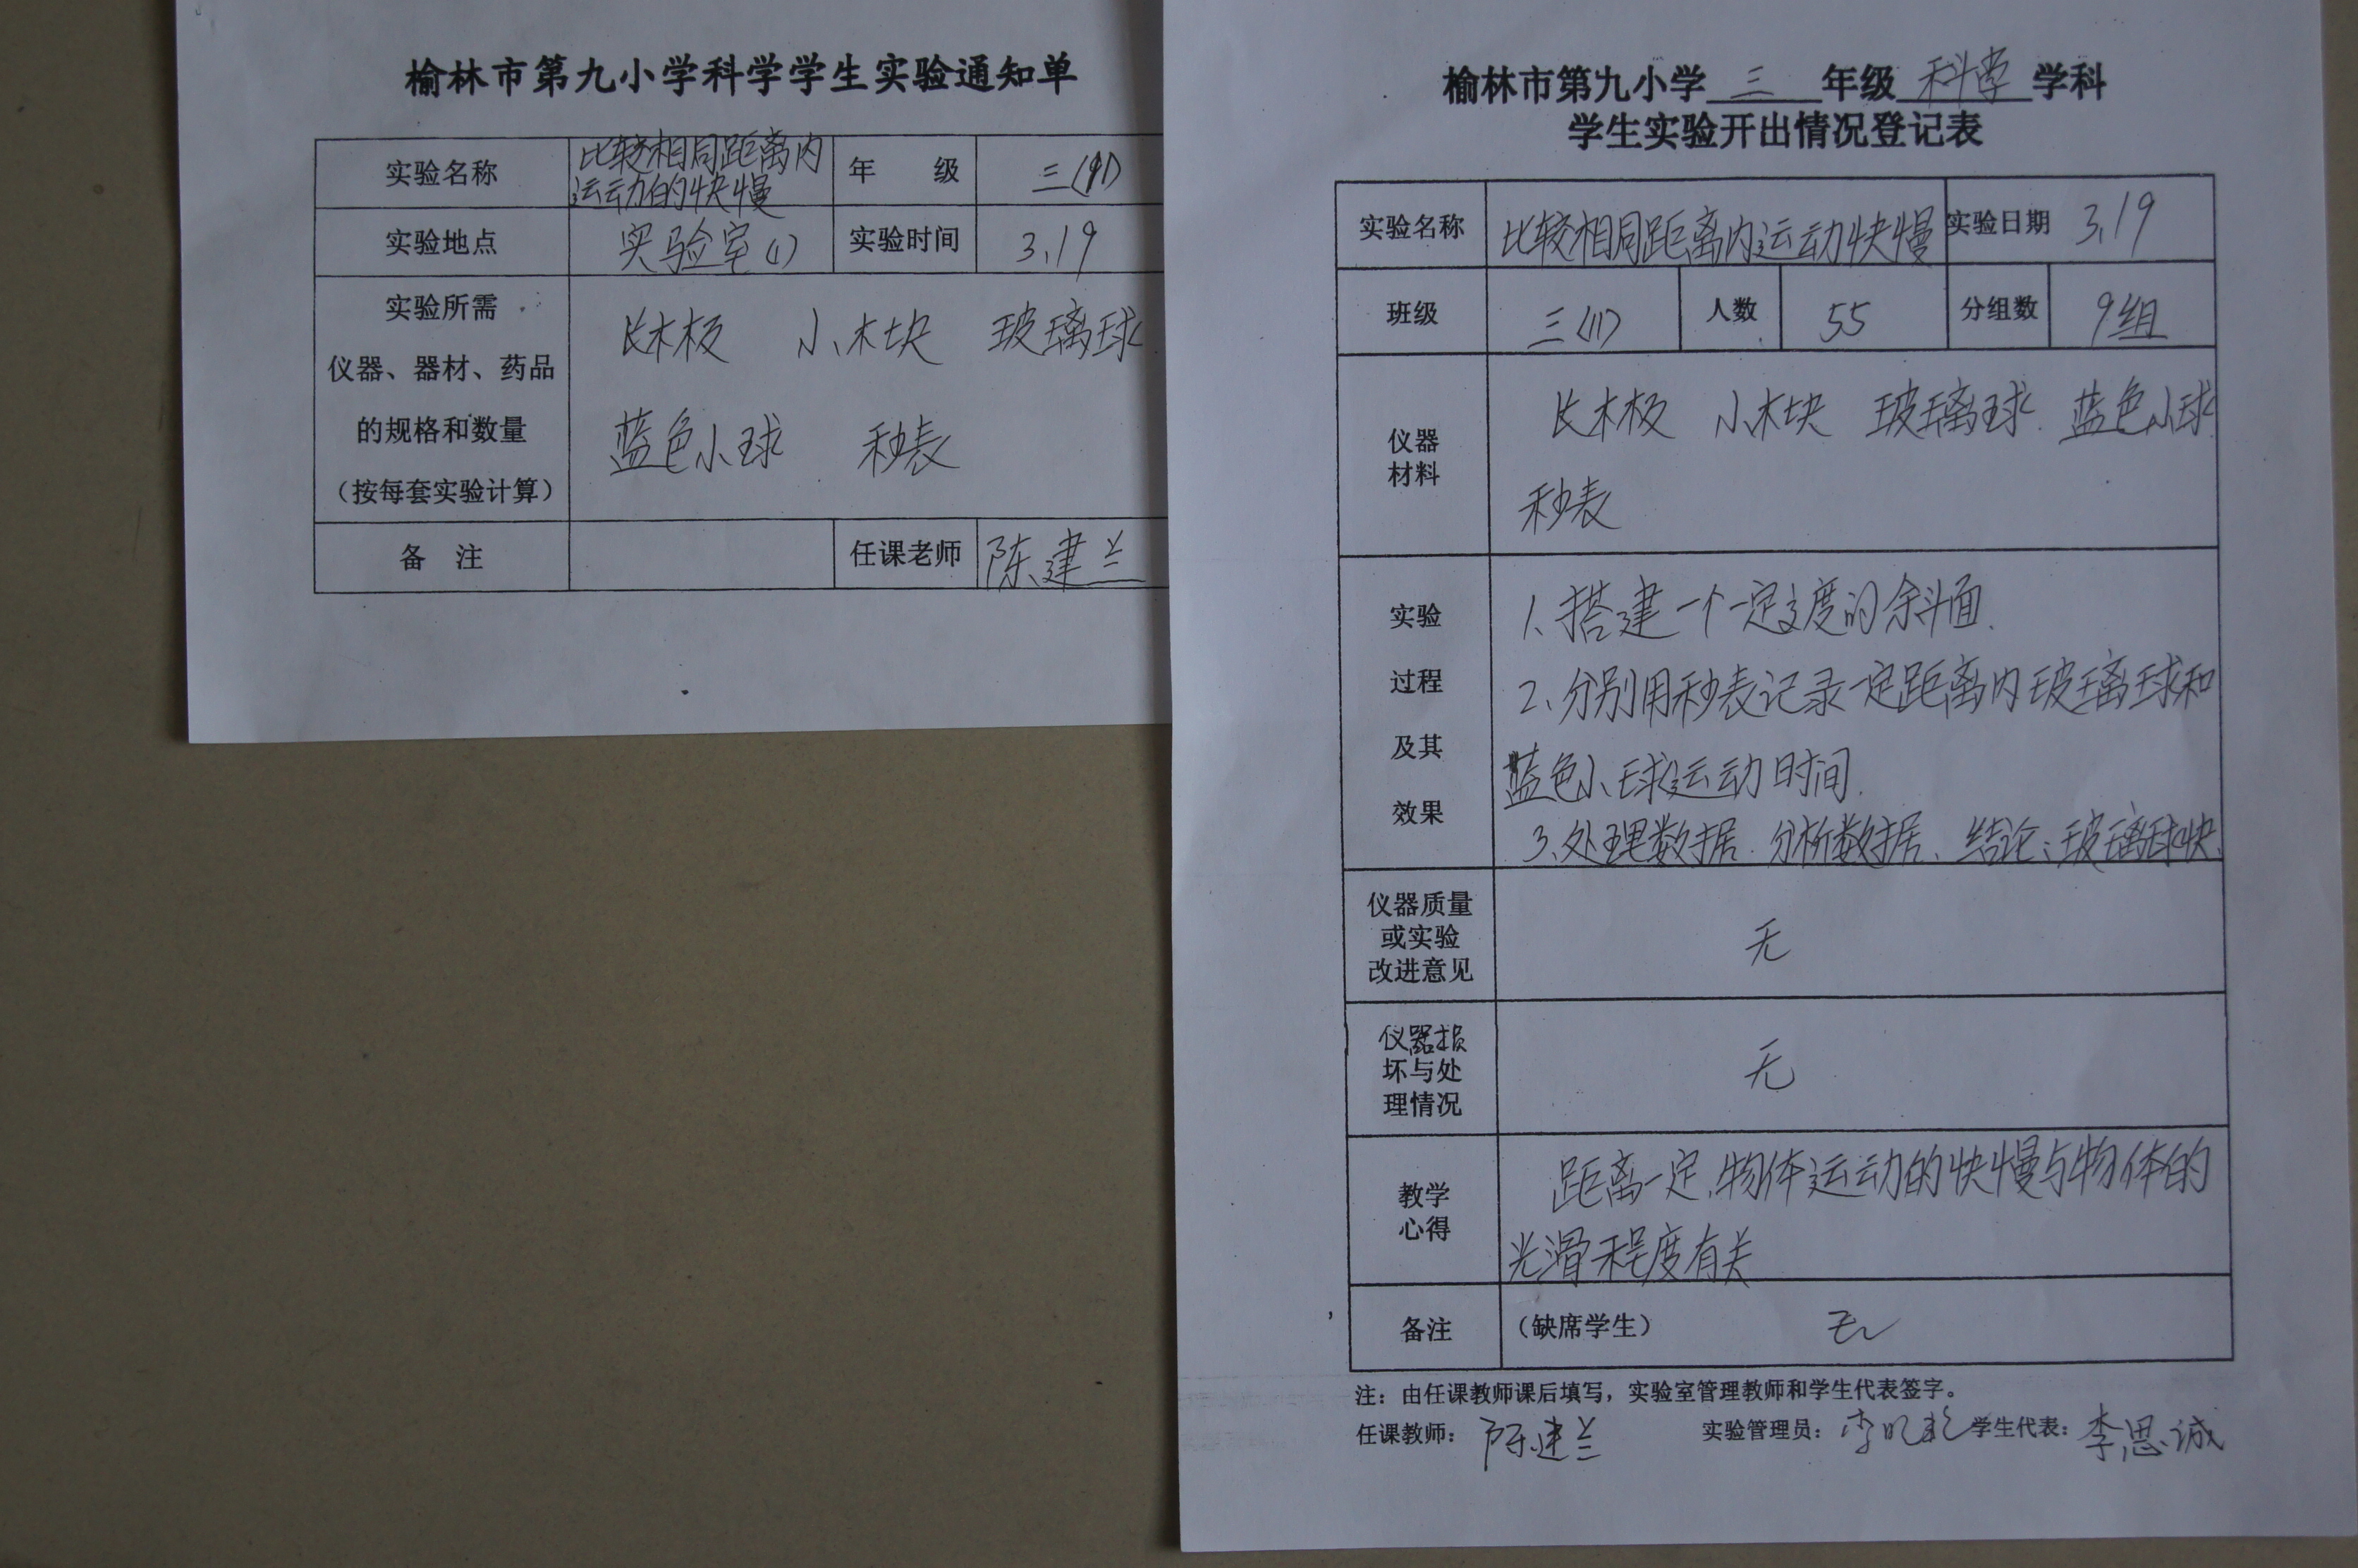 榆林市第九小学科学学生实验通知单
实验名称 比较相同距离内运动的快慢 年 级
实验地点 实验室(1) 实验时间 3.19
实验所需
仪器、器材、药品
的规格和数量
（按每套实验计算）
长木板 小木块 玻璃球
蓝色小球 秒表
备 注 任课老师 陈建兰
榆林市第九小学 三 年级 科学 学科
学生实验开出情况登记表
实验名称 比较相同距离内运动快慢 实验日期 3.19
班级 三(11) 人数 55 分组数 9组
仪器
材料
长木板 小木块 玻璃球 蓝色小球
秒表
实验
过程
及其
效果
1、搭建一个一定高度的斜面.
2、分别用秒表记录一定距离内玻璃球和
蓝色小球运动时间.
3、处理数据.分析数据、结论：玻璃球快.
仪器质量
或实验
改进意见
无
仪器损
坏与处
理情况
无
教学
心得
距离一定,物体运动的快慢与物体的
光滑程度有关
备注 （缺席学生） 无
注：由任课教师课后填写，实验室管理教师和学生代表签字。
任课教师： 陈建兰 实验管理员： 学生代表： 李思诚